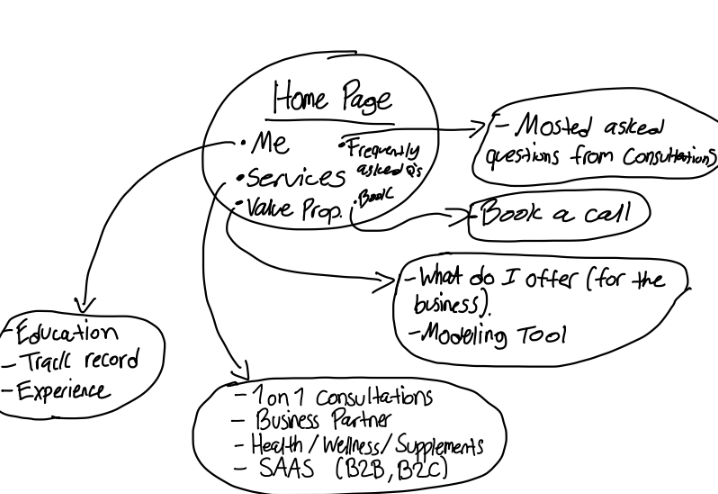 Home Page
• Me
• Services
• Value Prop.
• Frequently
asked Q's
• Book
- Mosted asked
questions from Consultations
- Book a call
- What do I offer (for the
business).
- Modeling Tool
- Education
- Track record
- Experience
- 1 on 1 Consultations
- Business Partner
- Health / Wellness / Supplements
- SAAS (B2B, B2C)